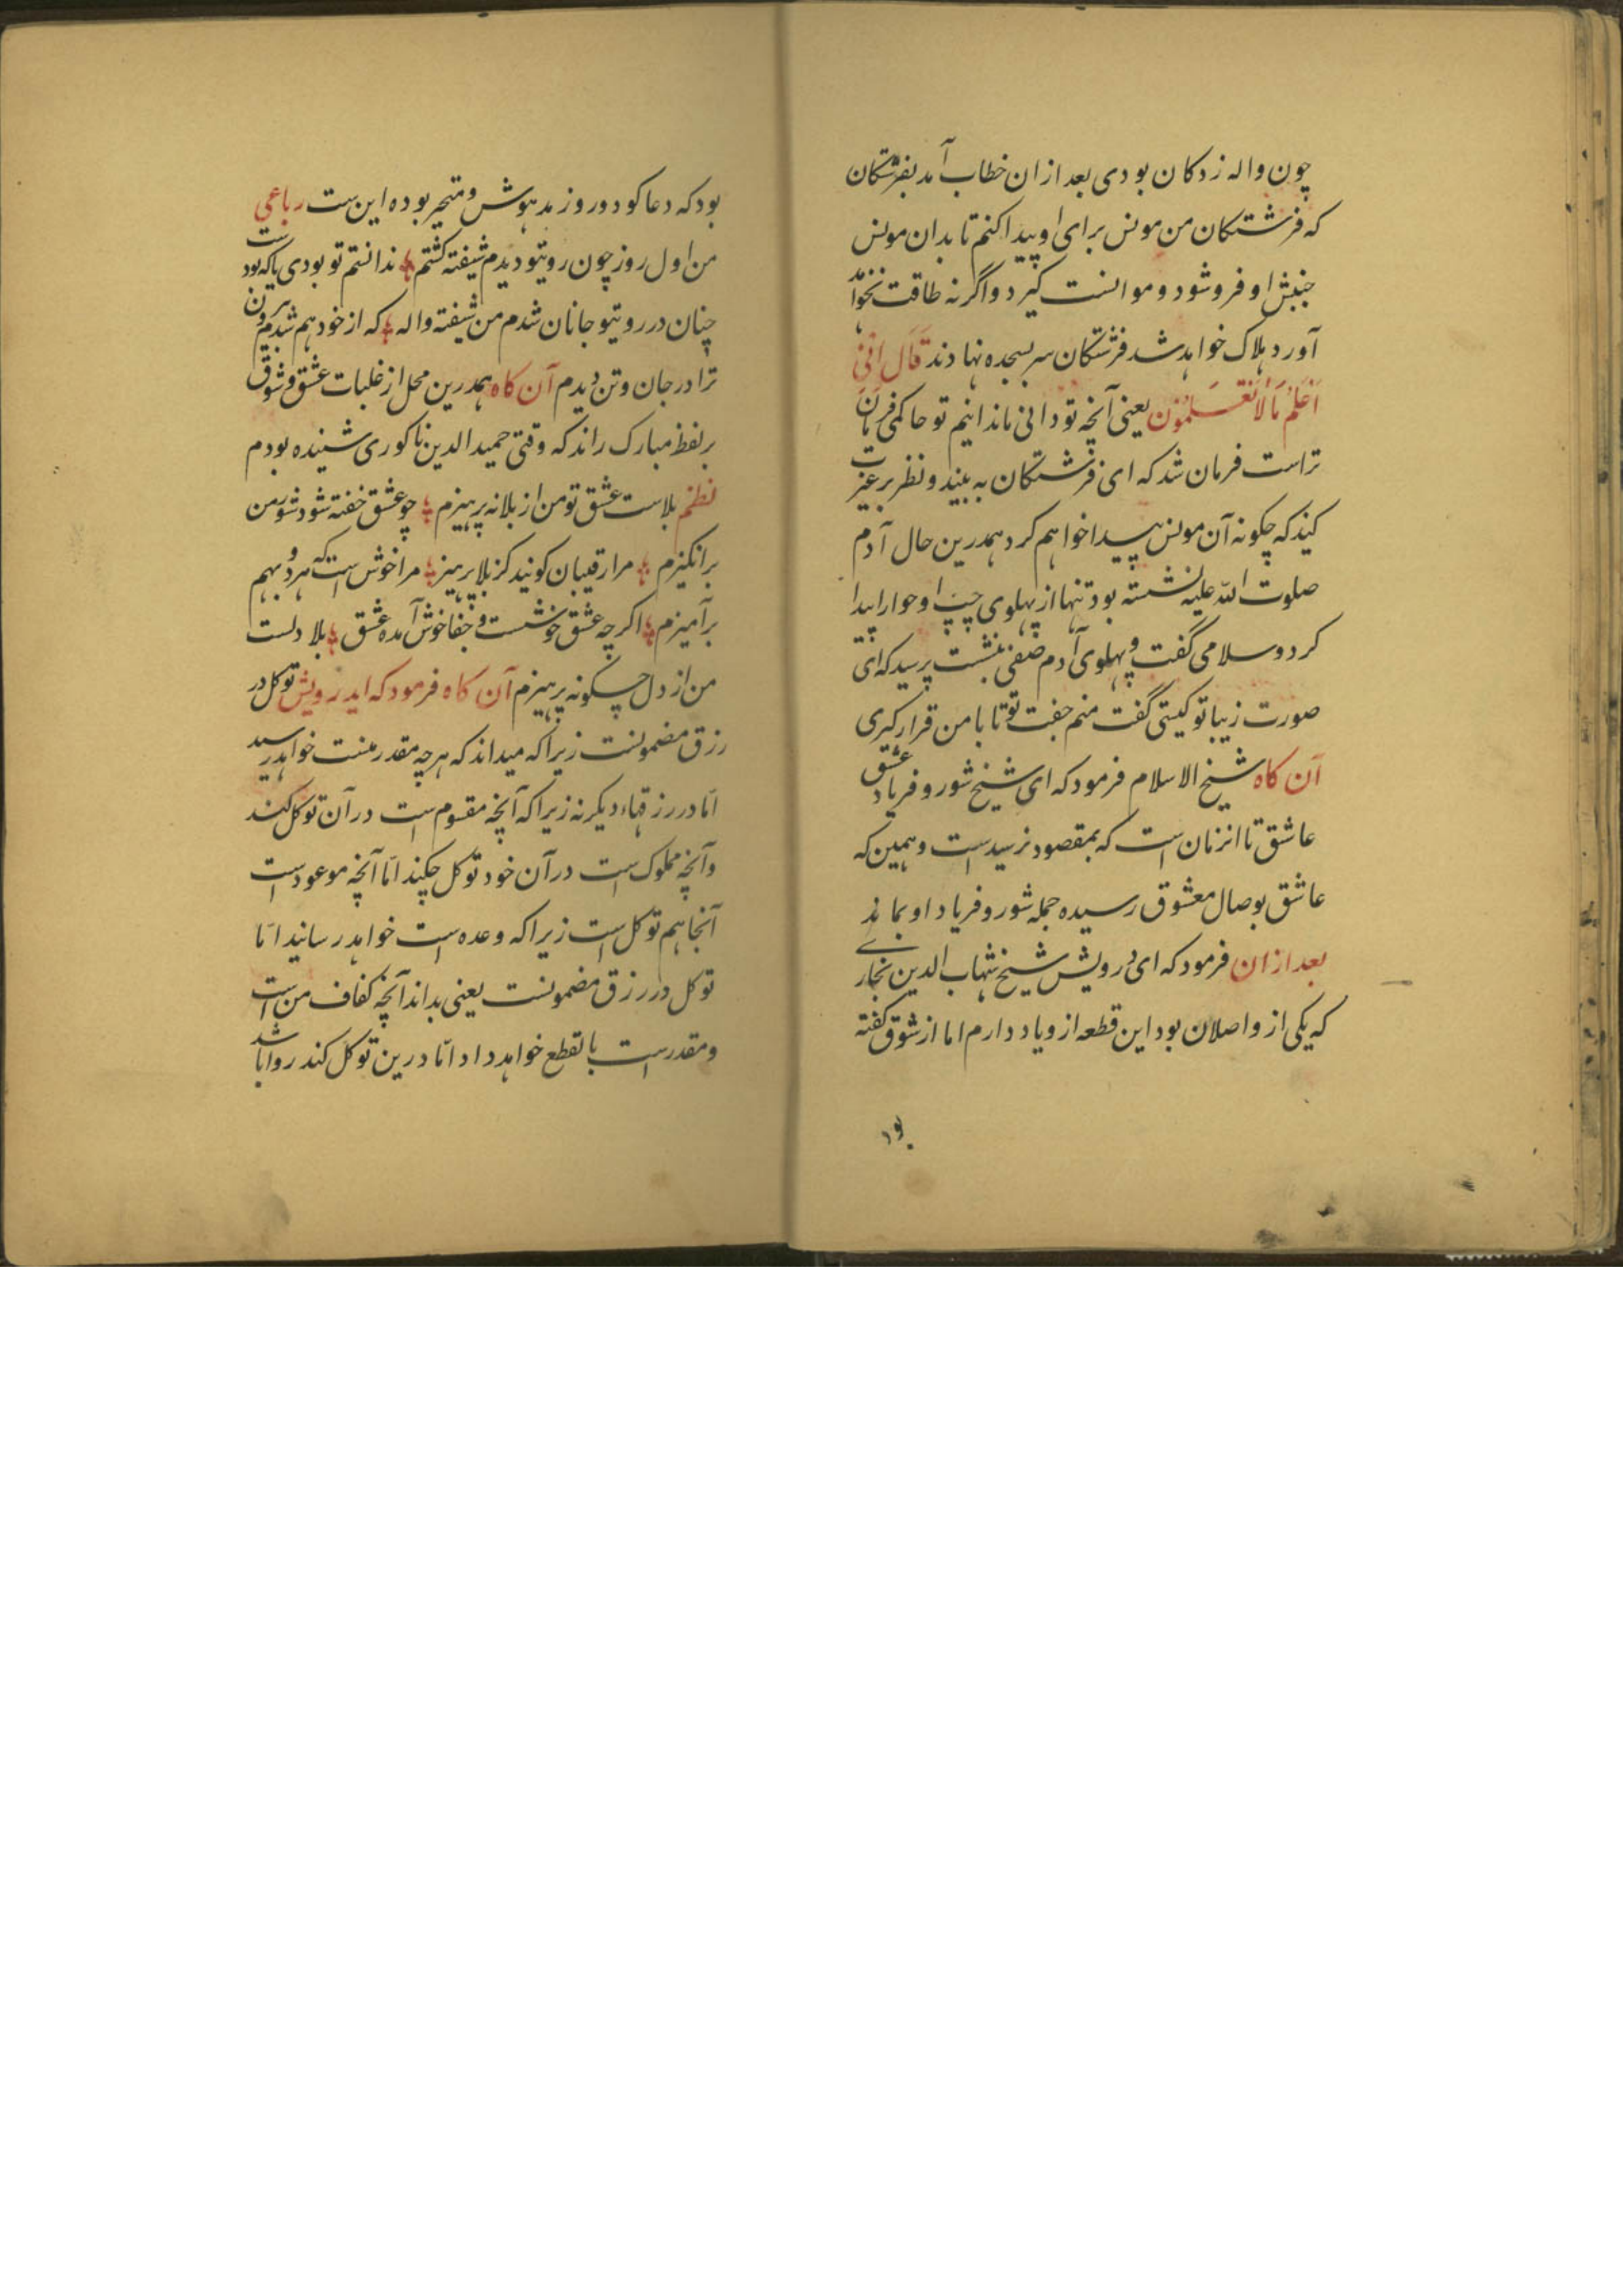 چون واله زدکان بودی بعد ازان خطاب آمد بفرشتکان
که فرشتکان من مونس برای او پیدا کنم تا بدان مونس
جنبش او فروشود و موانست کیرد و اگرنه طاقت نخواهد
آورد هلاک خواهد شد فرشتکان سر بسجده نهادند قَالَ اِنّیِ
اَعْلَمُ مَا لَا تَعْلَمُوْنَ یعنی آنچه تو دانی ما ندانیم تو حاکمی فرمان
تراست فرمان شد که ای فرشتکان به بیند و نظر بر عبرت
کنید که چکونه آن مونس پیدا خواهم کرد همدرین حال آدم
صلوت الله علیه نشسته بود تنها از پهلوی چپ او حوا را پیدا
کرد و سلامی گفت و پهلوی آدم صفی بنشست پرسید که ای
صورت زیبا تو کیستی گفت منم جفت تو تا با من قرار کیری
آن کاه شیخ الاسلام فرمود که ای شیخ شور و فریاد عشق
عاشق تا انزمان است که بمقصود نرسید است و همین که
عاشق بوصال معشوق رسیده جمله شور و فریاد او بماند
بعد ازان فرمود که ای درویش شیخ شهاب الدین بخاری
که یکی از واصلان بود این قطعه ازو یاد دارم اما از شوق گفته
بود که دعاکو دو روز مدهوش و متحیر بوده این ست رباعی
من اول روز چون رویتو دیدم شیفته کشتم ندانستم تو بودی یا که بودست
چنان در رویتو جانان شدم من شیفته واله که از خود هم شدم بیرون
ترا در جان و تن دیدم آن کاه همدرین محل از غلبات عشق و شوق
بر لفظ مبارک راند که وقتی حمید الدین ناکوری شنیده بودم
نظم بلاست عشق تو من از بلا نه پرهیزم چو عشق خفته شود شور من
برانکیزم مرا رقیبان کونید کز بلا پرهیز مرا خوش است که هر دو بهم
برآمیزم اکر چه عشق خوشست و جفا خوش آمده عشق بلا دلست
من از دل چکونه پرهیزم آن کاه فرمود که ایدرویش توکل در
رزق مضمونست زیرا که میداند که هر چه مقدر منست خواهد رسید
امّا در رزقهاء دیکر نه زیرا که آنچه مقسوم است در آن توکل کند
و آنچه مملوک است در آن خود توکل چکند امّا آنچه موعود است
آنجا هم توکل است زیرا که وعده است خواهد رسانید امّا
توکل در رزق مضمونست یعنی بداند آنچه کفاف من است
و مقدر است با تقطع خواهد داد امّا درین توکل کند روا باشد